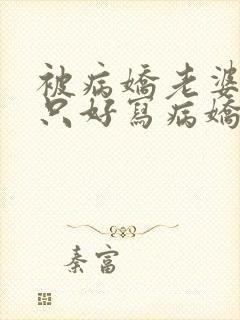 被病嬌老婆
只好寫病嬌
秦富